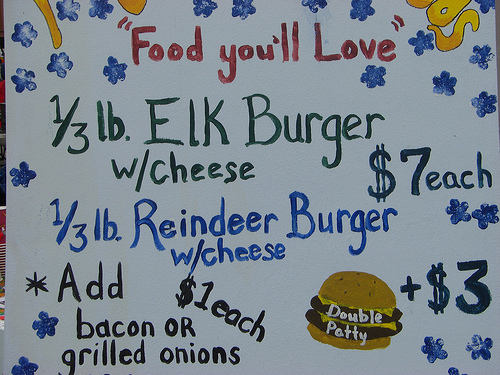 "Food you'll Love"
1/3 lb. Elk Burger
w/cheese
$7 each
1/3 lb. Reindeer Burger
w/cheese
* Add
$1 each
bacon OR
grilled onions
Double
Patty
+ $3